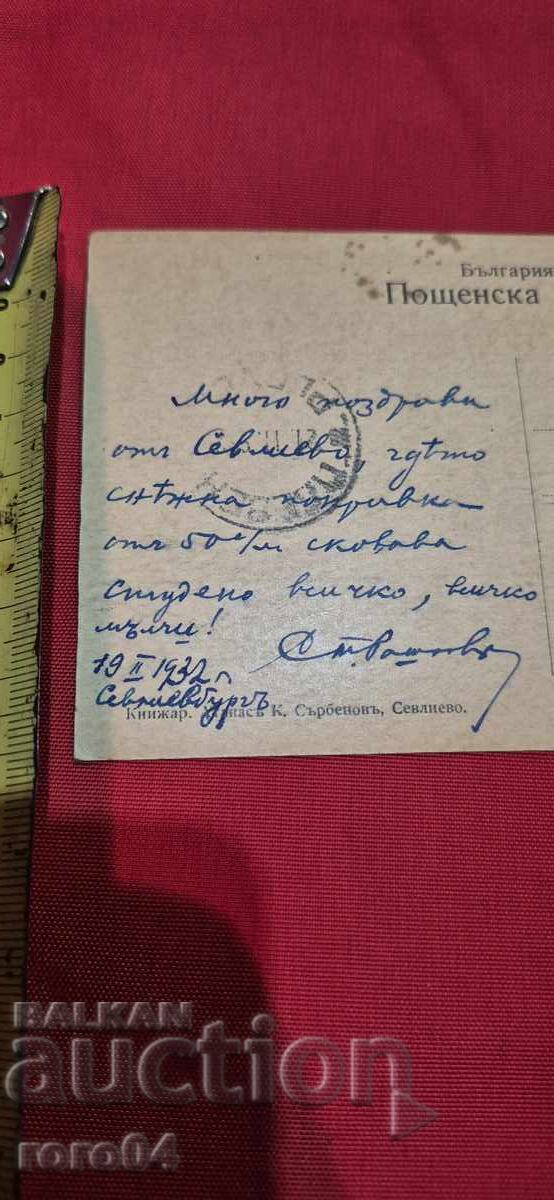 България
Пощенска
Много поздрави
отъ Севлиево, гдѣто
снѣжна покривка
отъ 50 с/м сковава
студено всичко, всичко
мълчи!
19 II 1932 г.
Севлиевбургъ
Книжар. К. Сърбеновъ, Севлиево.
BALKAN
auction
roro04